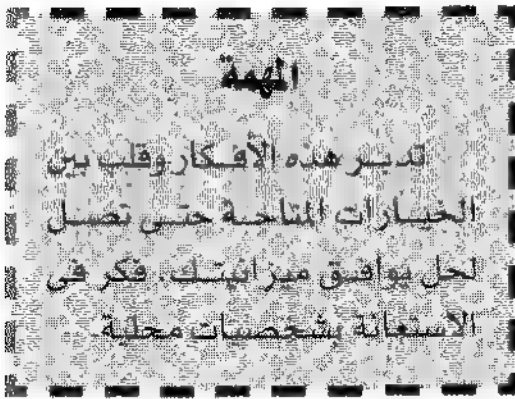 المهمة
تدبر هذه الأفكار وقلب بين
الخيارات المتاحة حتى تصل
لحل يوافق ميزانيتك. فكر في
الاستعانة بشخصيات محلية